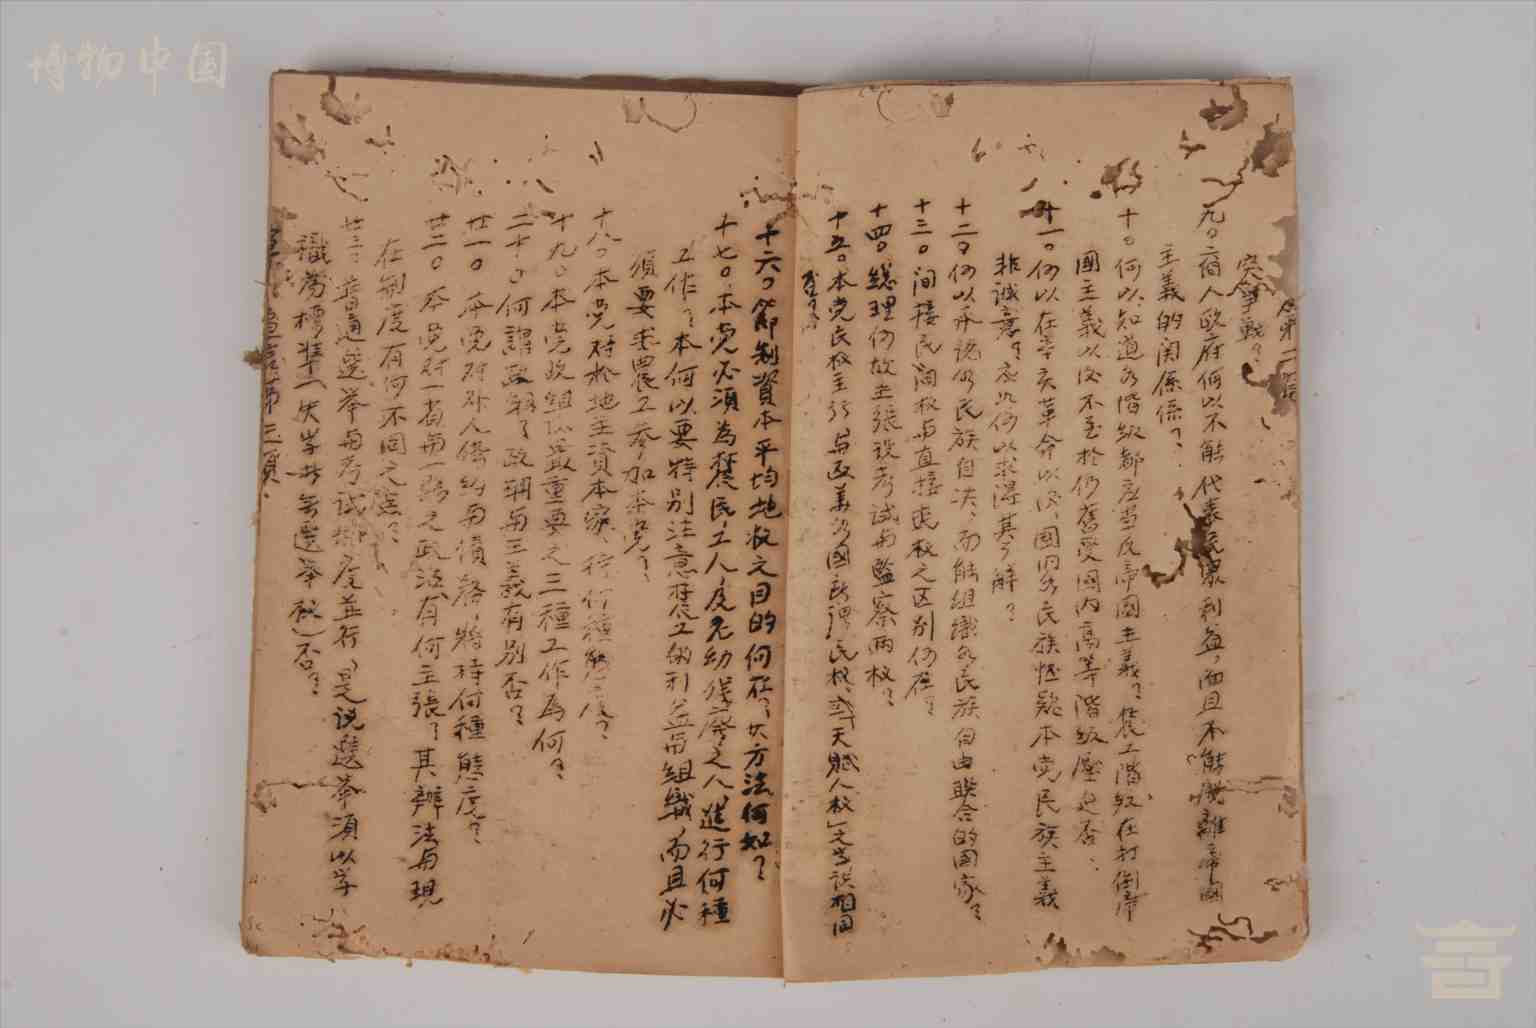 博物中国
突争戰？
九。二宿人政府何以不能代表
利益，而且不能離帝國
主義的関係？
十。何以知道各階級都应当反帝國主義？農工階級在打倒帝
國主義以后不至於仍舊受國内高等階級壓迫否？
十一。何以在辛亥革命以后，國内各民族怀疑本党民族主義
非誠意？应如何以求得其了解？
十二。何以承認各民族自决，而能組織各民族自由联合的國家？
十三。间接民权与直接民权之区别何在？
十四。總理何故主張設考試与監察两权？
十五。本党民权主 与欧美各國 民权，或「天賦人权」之学説相同
否？
十六。節制資本平均地权之目的何在？其方法何如？
十七。本党必須為農民，工人，及老幼残廢之人，進行何種
工作？本何以要特别注意農工的利益而組織，而且必
須要求農工参加本党？
十八。本党对於地主資本家，行何種態度？
十九。本党政组 最重要之三種工作為何？
二十。何謂政綱？政綱与主義有别否？
廿一。本党对外人條約与債務，將持何種態度？
廿二。本党对一省与一縣之政治有何主張？其辦法与現
在制度有何不同之處？
廿三。普通選举与考試制度並行，是说選举須以学
識為標準（失学者無選举权）否？
第三頁